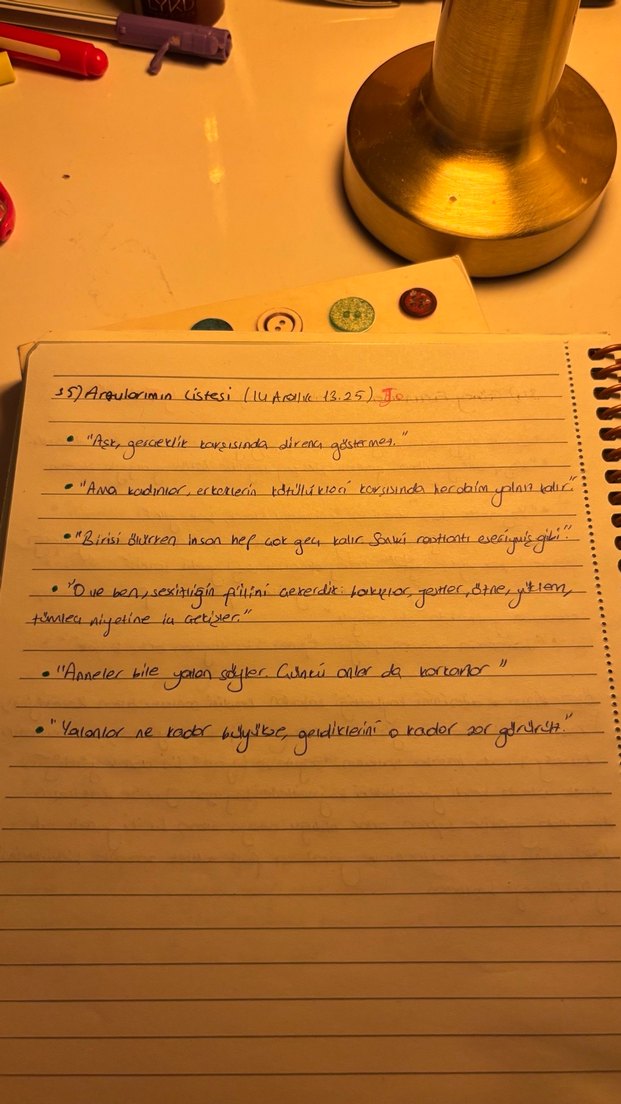 35) Arzularımın Listesi (14 Aralık 13.25)
"Aşk, gerçeklik karşısında direnç göstermez."
"Ama kadınlar, erkeklerin kötülükleri karşısında her daim yalnız kalır."
"Birisi ölürken insan hep çok geç kalır. Sanki rastlantı eseriymiş gibi."
"O ve ben, sessizliğin fiilini çekerdik: bakışlar, jestler, özne, yüklem,
tümleç niyetine iç çekişler."
"Anneler bile yalan söyler. Çünkü onlar da korkarlar"
"Yalanlar ne kadar büyükse, geldiklerini o kadar zor görürüz."